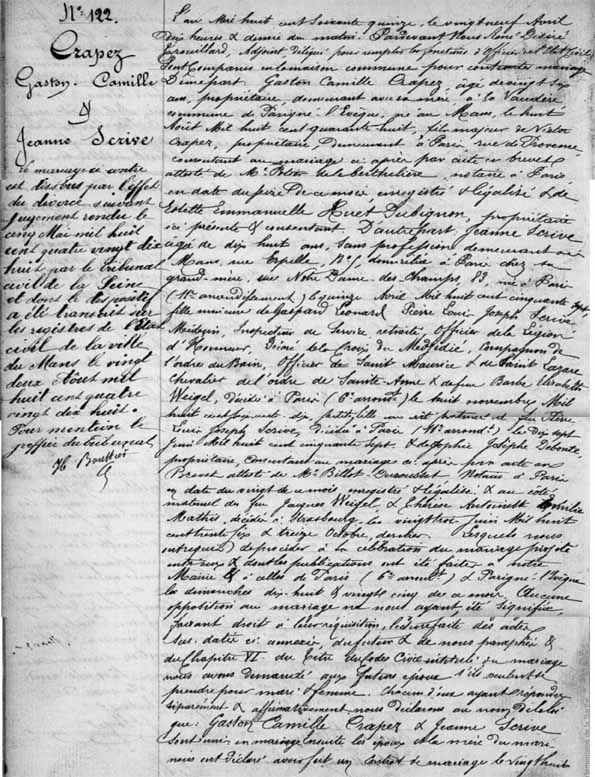 N° 122.
Crapez
Gaston. Camille
&
Jeanne Scrive
Le mariage ci contre
est dissous par l'effet
du divorce suivant
jugement rendu le
cinq Mai mil huit
cent quatre vingt dix
huit par le tribunal
civil de la Seine
et dont le dispositif
a été transcrit sur
les registres de l'Etat
civil de la ville
du Mans le vingt
deux Août mil
huit cent quatre
vingt dix huit.
Pour mention le
greffier du tribunal,
L'an Mil huit cent soixante quinze, le vingt neuf Avril
dix heures & demie du matin: Pardevant Nous René-Désiré
Adjoint délégué pour remplir les fonctions d'Officier de l'Etat Civil
Sont Comparus en la maison commune pour contracter mariage
D'une part. Gaston Camille Crapez, âgé de vingt six
ans, propriétaire, demeurant avec sa mère à la
commune de Parigné-l'Evêque, né au Mans, le huit
Août Mil huit cent quarante huit, fils majeur de
Crapez, propriétaire demeurant à Paris rue de Provence
consentant au mariage ci après par acte en brevet
attesté de Me notaire à Paris
en date du de ce mois enregistré & légalisé & de
Emmanuelle Huret Dubignon, propriétaire
ici présente & consentant D'autre part, Jeanne Scrive
agée de dix huit ans, Sans profession demeurant au
Mans, rue domiciliée à Paris chez sa
grand-mère, rue Notre Dame-des-Champs, 83, née à Paris
(11e arrondissement) le quinze Avril Mil huit cent cinquante sept
fille mineure de Gaspard Léonard Pierre Louis Joseph Scrive,
Médecin, Inspecteur de Service retraité, Officier de la Légion
d'Honneur, Décoré de la Croix du Medjidié, Compagnon de
l'ordre du Bain, Officier de Saint Maurice & de Saint Lazare
Chevalier de l'ordre de Sainte-Anne & de feue Barbe Elisabeth
Weigel, décédée à Paris (6e arrondt) le huit novembre Mil
huit cent soixante dix petite fille au côté paternel de feu Pierre
Louis Joseph Scrive, décédé à Paris (11e arrondt) le dix sept
Juin Mil huit cent cinquante sept & de Sophie Josèphe
propriétaire, consentant au mariage ci après par acte en
Brevet attesté de Me Billot- Notaire à Paris
en date du vingt de ce mois enregistré & légalisé & au côté
maternel de feu Jacques Weigel & Thérèse Antoinette Emilie
Mathis, décédés à Strasbourg, les vingt trois Juin Mil huit
cent trente six & treize Octobre, dernier. Lesquels nous
ont requis de procéder à la célébration du mariage projeté
entre eux & dont les publications ont été faites à notre
Mairie & à celles de Paris (6e arrondt) & Parigné-l'Evêque
les dimanches dix-huit & vingt cinq de ce mois, Aucune
opposition au mariage ne nous ayant été signifiée,
faisant droit à leur réquisition, lecture faite des actes
sus datés ci annexés, du futur & de nous paraphés &
du Chapitre VI du titre du Code Civil intitulé du mariage
nous avons demandé aux futurs époux s'ils veulent se
prendre pour mari & femme. Chacun d'eux ayant répondu
séparément & affirmativement nous déclarons au nom de la loi
que Gaston Camille Crapez & Jeanne Scrive
sont unis en mariage Ensuite les époux & la mère du mari
nous ont déclaré avoir fait un Contrat de mariage le vingt huit